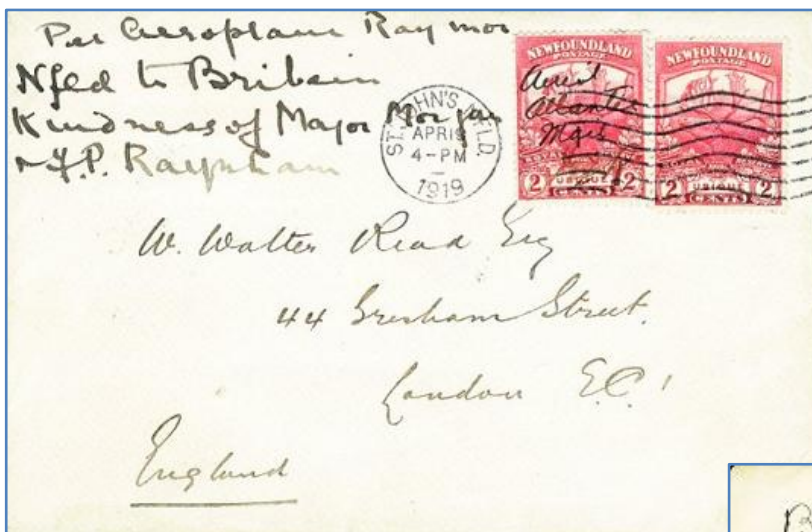 Per Aeroplane Raymor
Nfld to Britain
Kindness of Major Morgan
& F.P. Raynham
ST. JOHN'S NFLD.
APR 19
4-PM
1919
NEWFOUNDLAND
POSTAGE
Aerial
Atlantic
Mail
UBIQUE
2 CENTS 2
NEWFOUNDLAND
POSTAGE
UBIQUE
2 CENTS 2
W. Walter Read Esq
44 Gresham Street.
London E.C.1
England